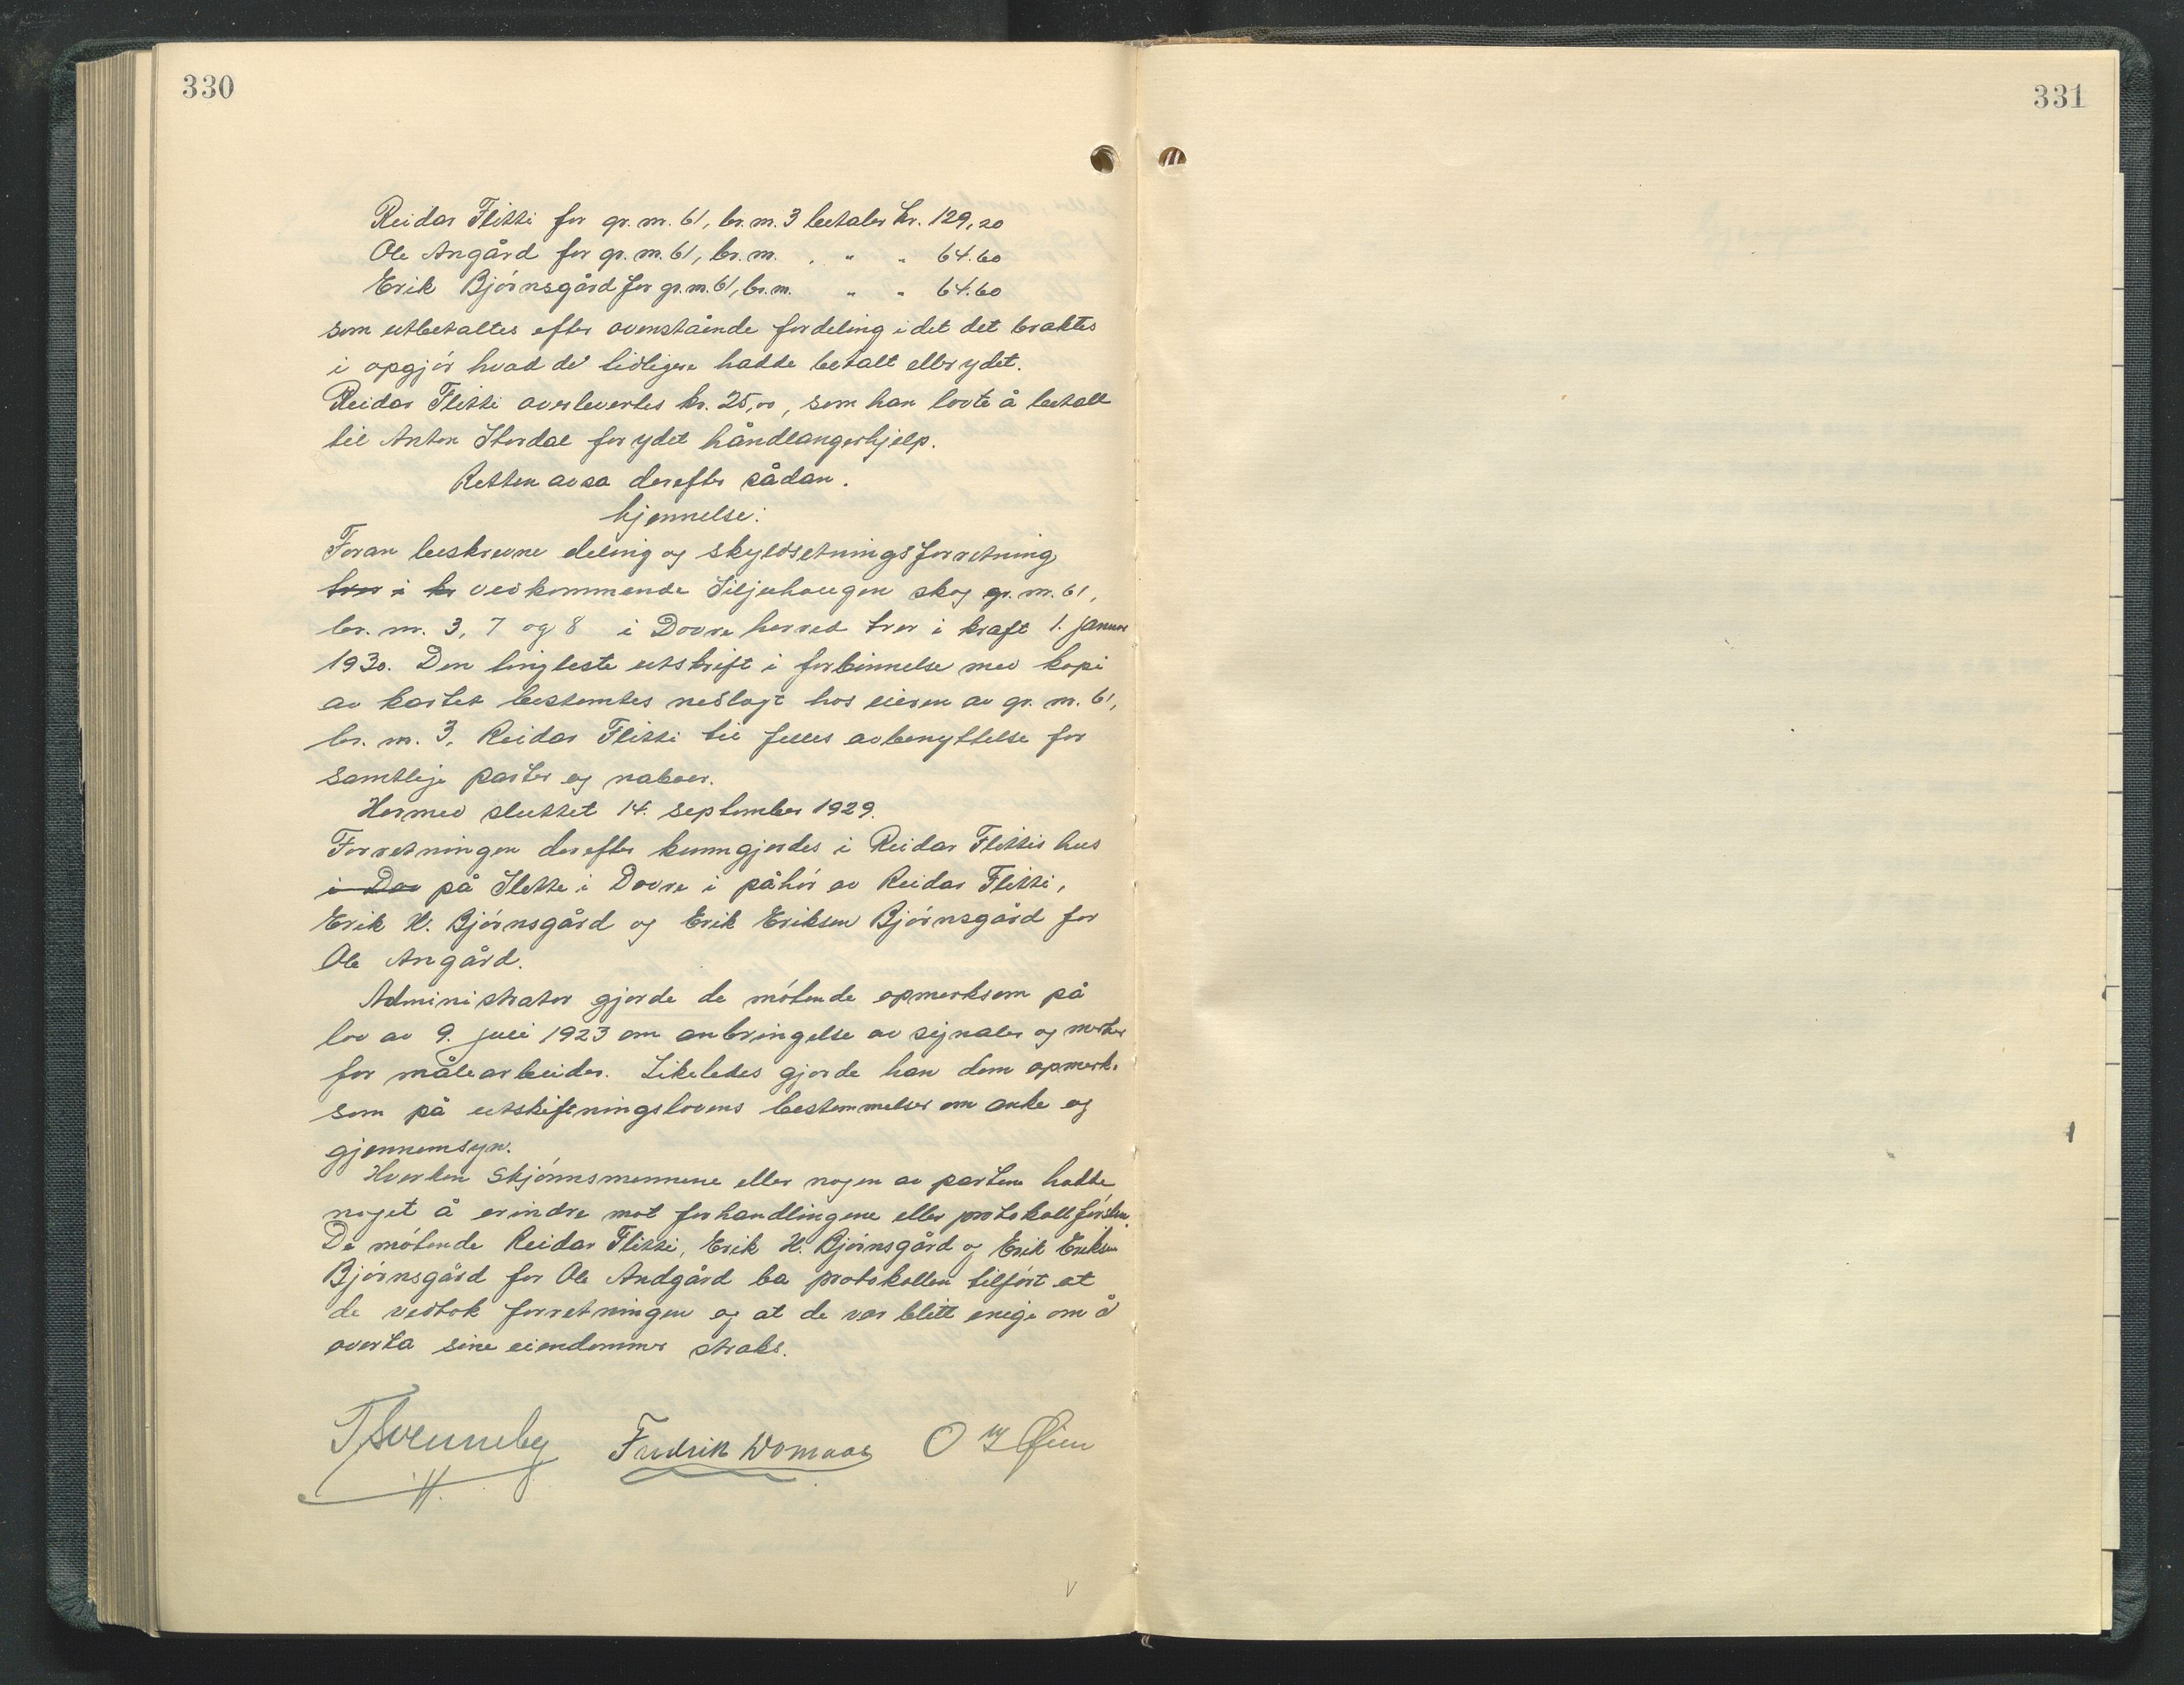 330
331
Reidar Flitti for gr. nr. 61, br. nr. 3 betaler kr. 129,20
Ole Angård for gr. nr. 61, br. nr. . " " 64.60
Erik Bjørnsgård for gr. nr. 61, br. nr. " " 64.60
som utbetaltes efter ovenstående fordeling idet det braktes
i opgjør hvad de tidligere hadde betalt eller ydet.
Reidar Flitti overlevertes kr. 25,00, som han lovte å betall
til Anton Stordal for ydet håndlangerhjelp.
Retten avsa derefter sådan.
kjennelse:
Foran beskrevne deling og skyldsetningsforretning
trer i kr vedkommende Siljuhaugen skog gr. nr. 61,
br. nr. 3, 7 og 8 i Dovre herred trer i kraft 1. januar
1930. Den tingleste utskrift i forbinnelse med kopi
av kartet bestemtes nedlagt hos eieren av gr. nr. 61,
br. nr. 3, Reidar Flitti til felles avbenyttelse for
samtlige parter og naboer.
Hermed sluttet 14. september 1929.
Forretningen derefter kunngjordes i Reidar Flittis hus
i Dov på Slette i Dovre i påhør av Reidar Flitti,
Erik H. Bjørnsgård og Erik Eriksen Bjørnsgård for
Ole Angård.
Administrator gjorde de møtende opmerksom på
lov av 9. juli 1923 om anbringelse av signaler og merker
for målearbeider. Likeledes gjorde han dem opmerk-
som på utskiftningslovens bestemmelser om anke og
gjennemsyn.
Hverken skjønnsmennene eller nogen av partene hadde
noget å erindre mot forhandlingene eller protokollførslen.
De møtende Reidar Flitti, Erik H. Bjørnsgård og Erik Eriksen
Bjørnsgård for Ole Andgård ba protokollen tilført at
de vedtok forretningen og at de var blitt enige om å
overta sine eiendommer straks.
T Svenneby Fredrik Domaas O Øien